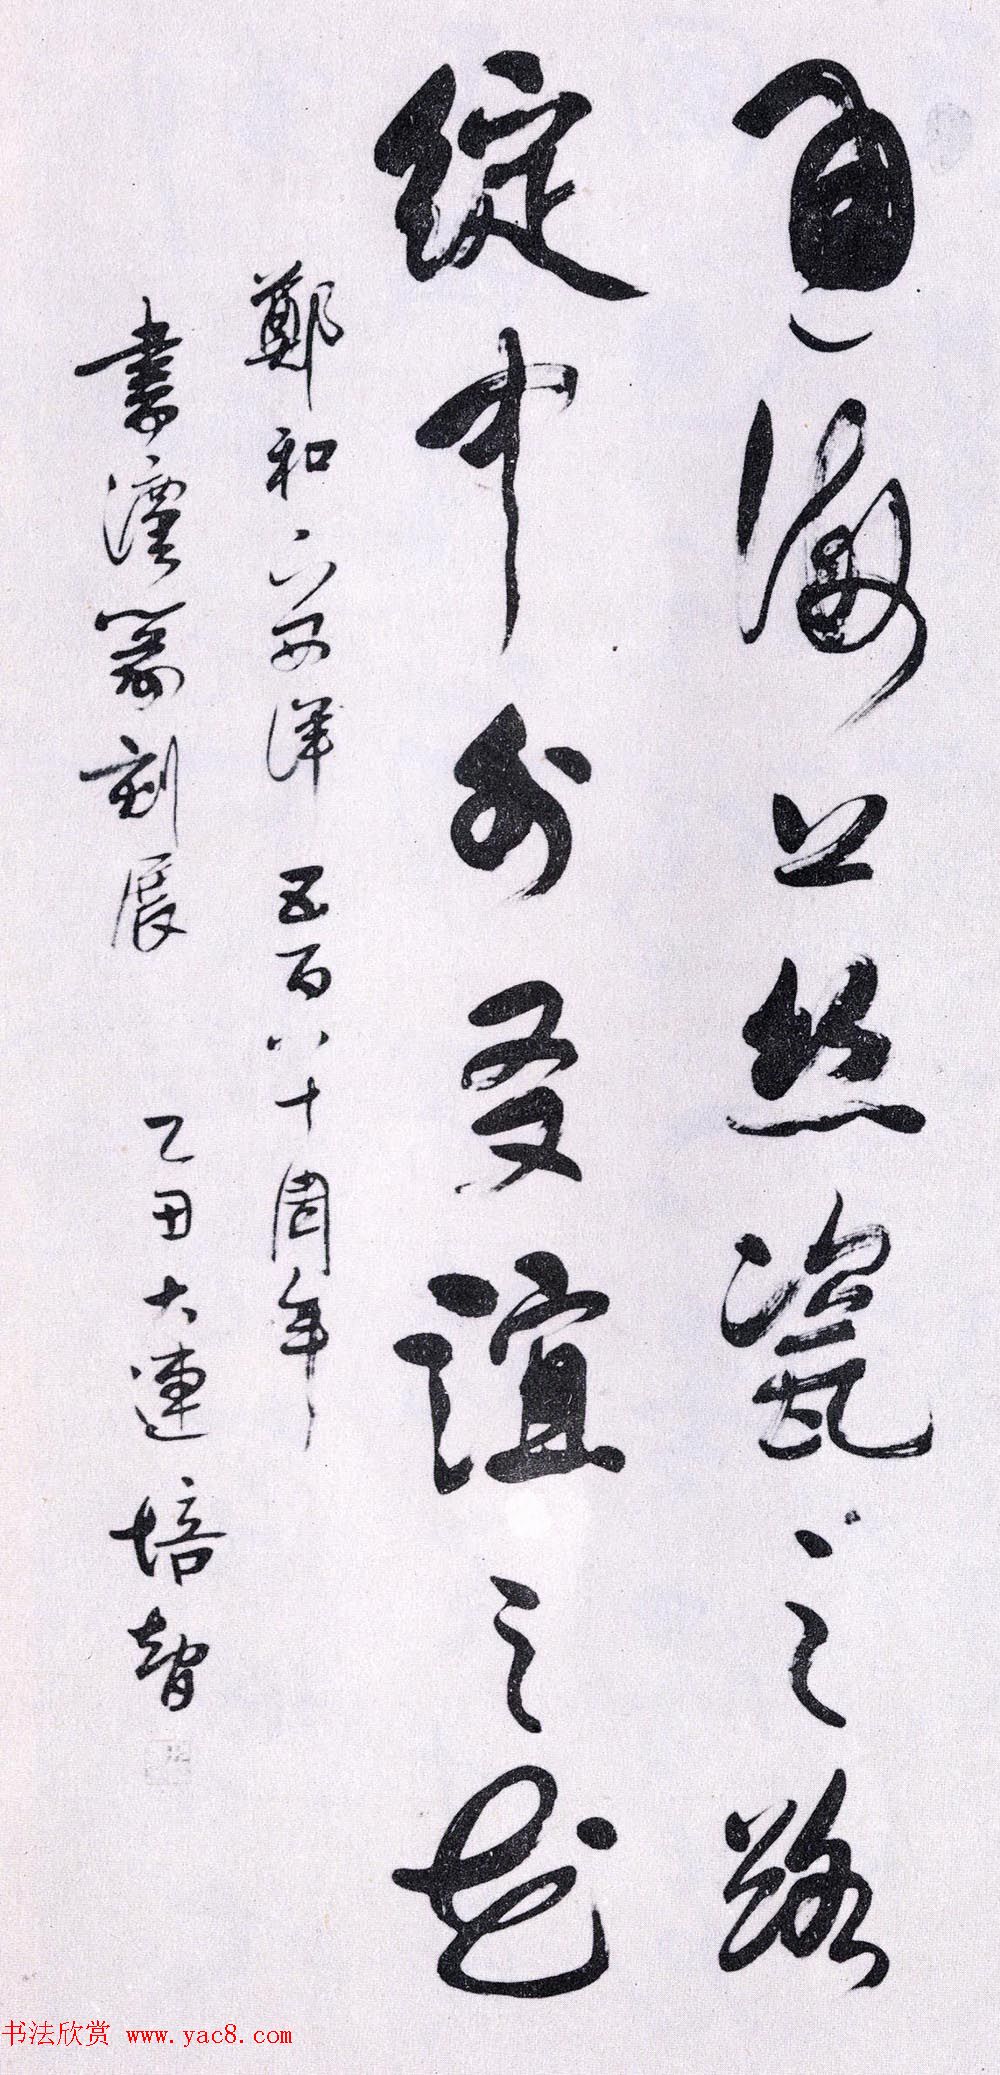 通海上丝瓷之路
绽中外友谊之花
鄭和下西洋五百八十周年
書漢篆刻展 乙丑大連培智
书法欣赏 www.yac8.com